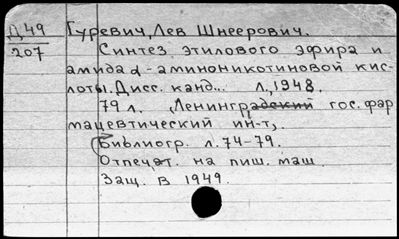 Д 49 Гуревич, Лев Шнеерович.
207 Синтез этилового эфира и
амида α-аминоникотиновой кис-
лоты. Дисс. канд... Л., 1948.
79 л. (Ленингр. гос. фар
мацевтический ин-т).
Библиогр. л. 74-79.
Отпечат. на пиш. маш.
Защ. в 1949.